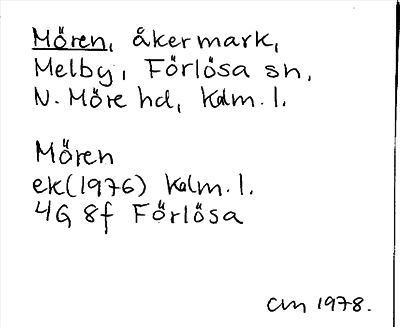 Mören, åkermark,
Melby, Förlösa sn,
N. Möre hd, Kdm. l.
Mören
ek(1976) Kalm. l.
4G 8f Förlösa
CM 1978.